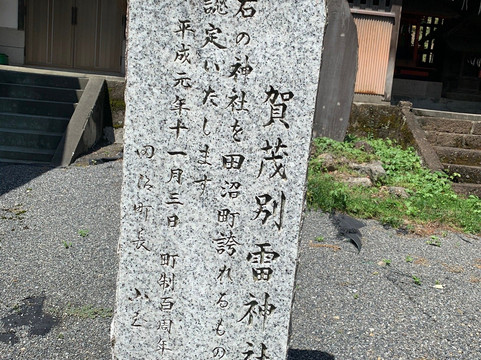 賀茂別雷神社
右の神社を田沼町誇れるもの
認定いたします
平成元年十一月三日 町制百周年
田沼町長